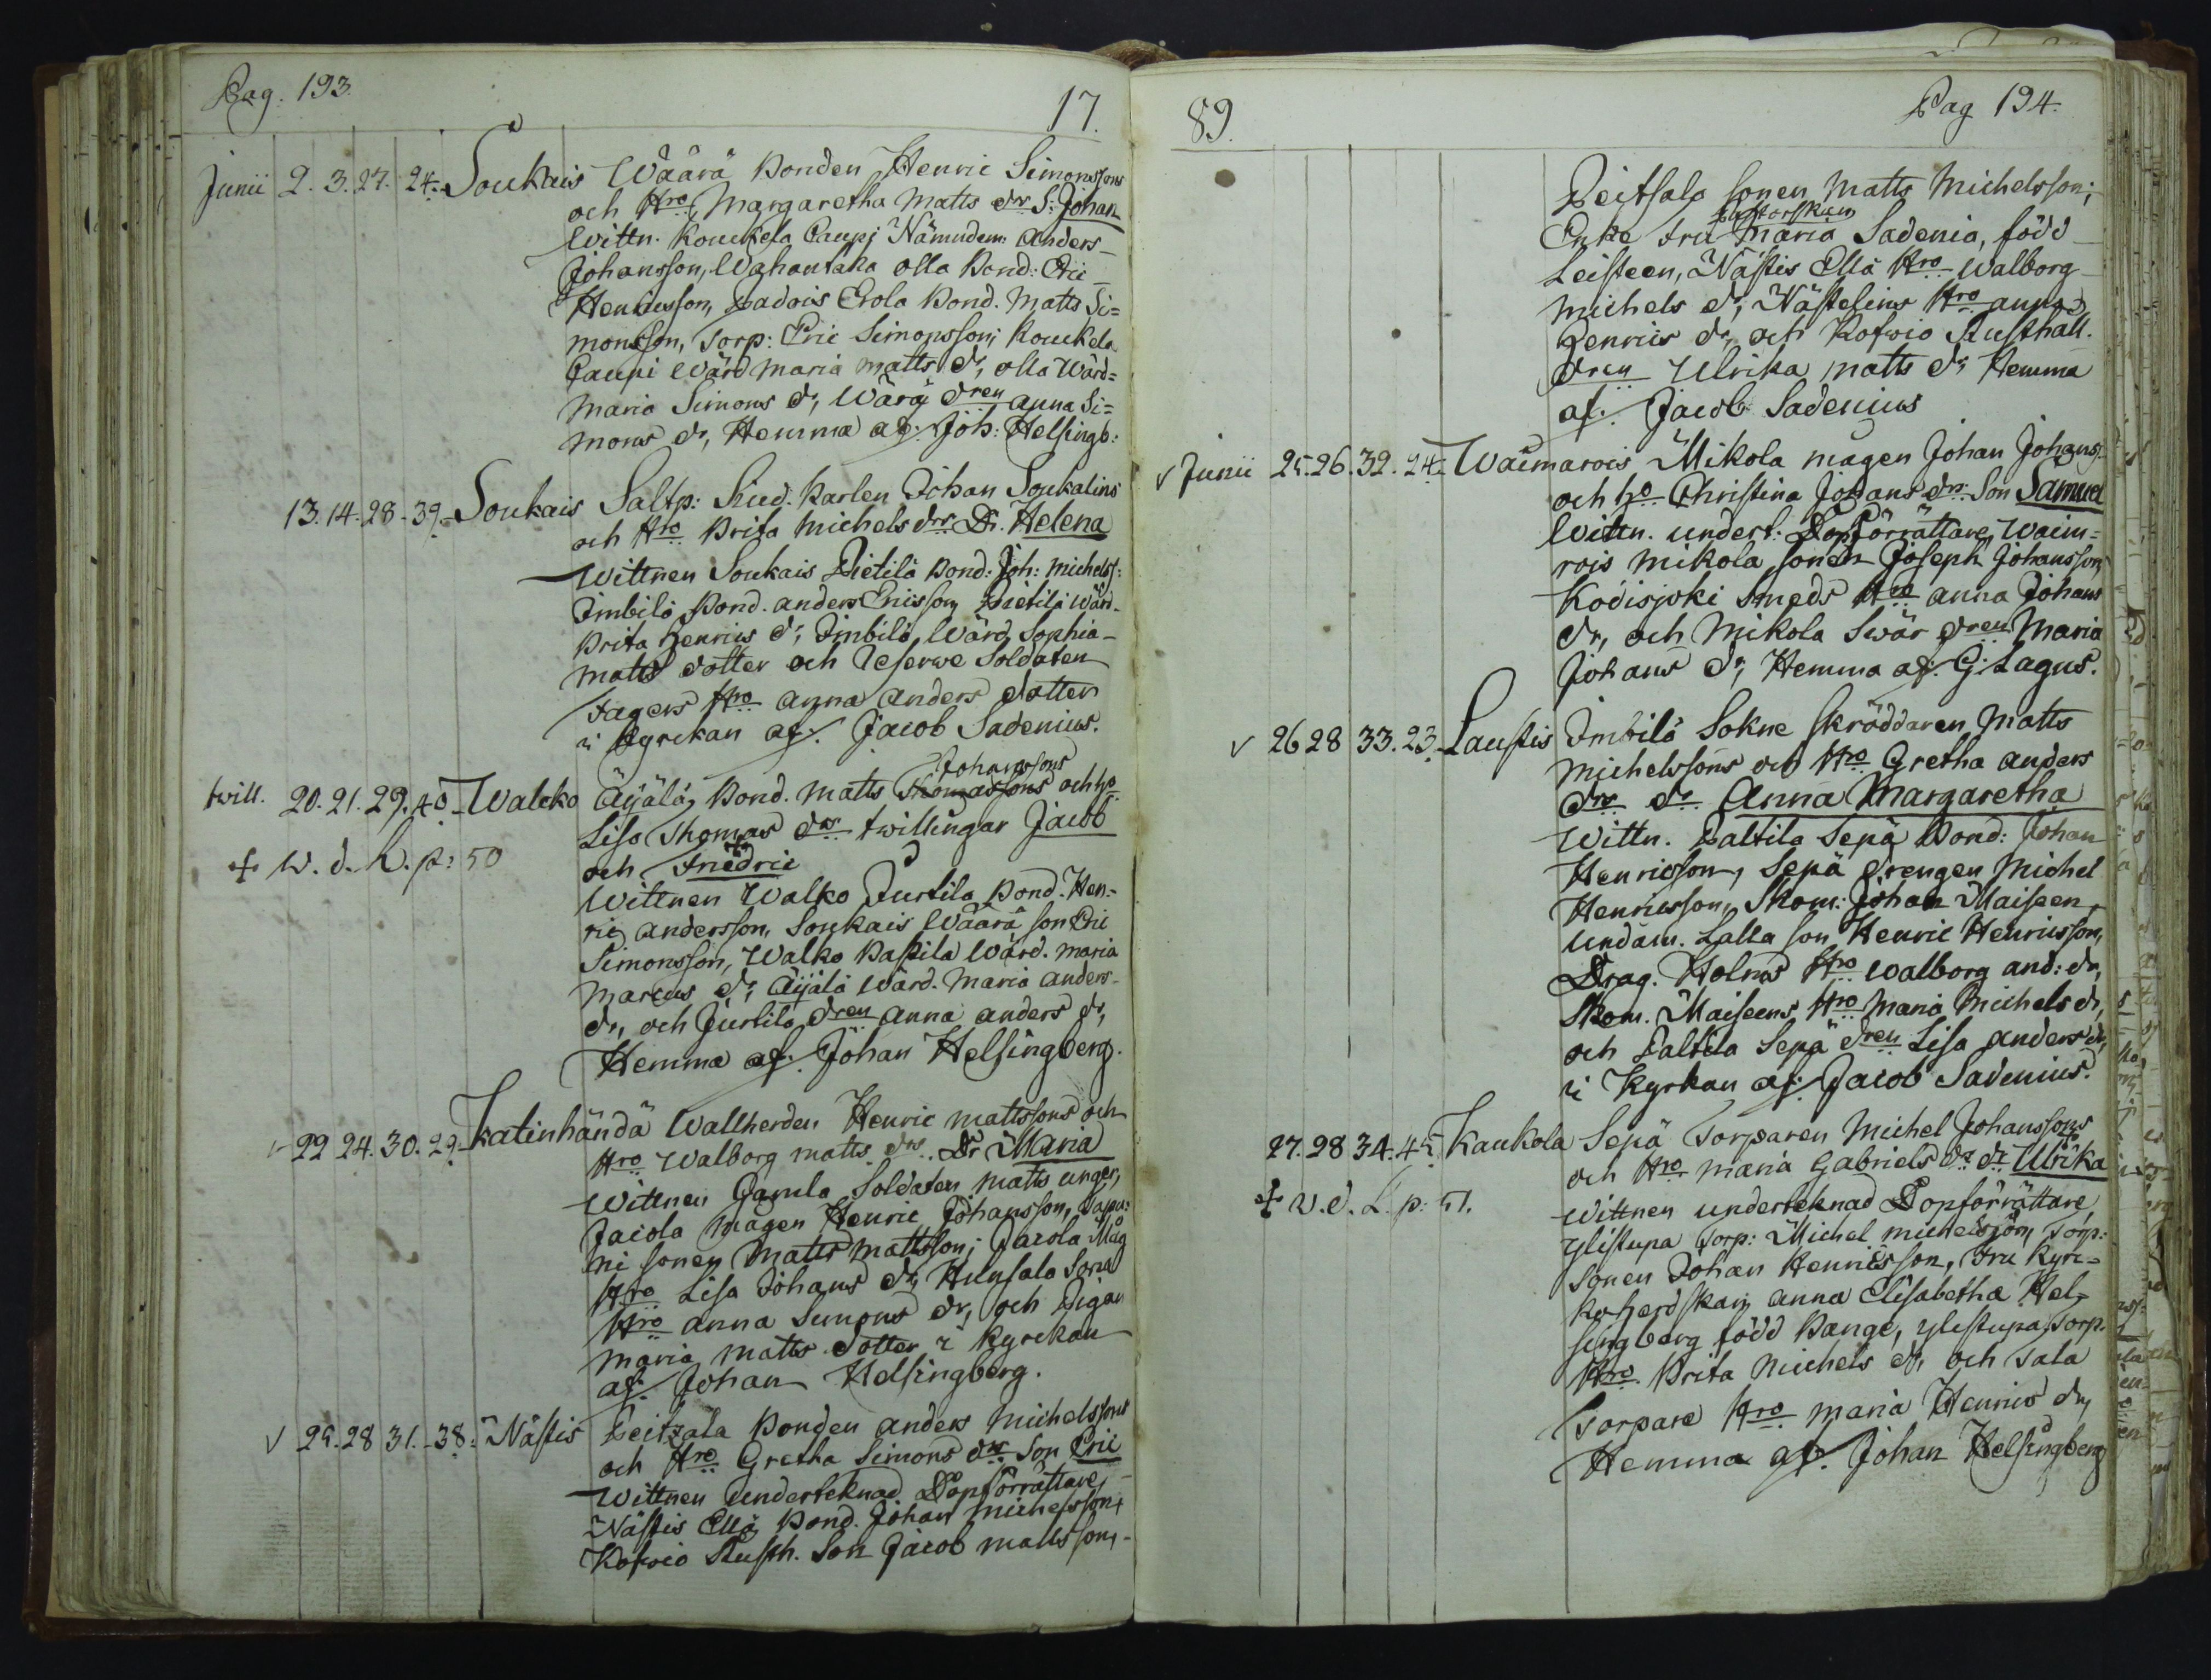 Pag. 193.
17.
Junii 2. 3. 27. 24. Soukais Wäärä Bonden Henric Simonssons
och Hro Margaretha Matts dr S: Johan
Wittn. Kouckela Caupi Nämndem: Anders
Johansson, Wahantaka Olla Bond: Eric
Henricsson, Padois Erola Bond. Matts Si=
monsson, Torp: Eric Simonsson; Kouckela
Caupi Wärd Maria Matts dr, Olla Wärd=
Maria Simons dr, Wärä dren Anna Si=
mons dr, Hemma af: Joh: Helsingb:
13. 14. 28. 39. Soukais Saltp: Siud. Karlen Johan Soukalins
och Hro Brita Michels drs Dr. Helena
Wittnen Soukais Pietilä Bond: Joh: Michelss:
Imbilä Bond. Anders Ericsson, Pietilä Wärd.
Brita Henrics dr, Imbilä Wärd Sophia
Matts dotter och Reserwe Soldaten
Fagers Hro Anna Anders dotter
i Kyrckan af: Jacob Sadenius.
Johanssons
twill. 20. 21. 29. 40 Walcko Äijälä Bond. Matts Thomassons och Ho
Lisa Thomas drs twillingar Jacob
+ w. d. L. p: 50
och Friedric
Wittnen Walko Jurtila Bond. Hen=
ric Andersson, Soukais Wäärä son Eric
Simonsson, Walko Pastila Wärd. Maria
Marcus dr, Äijälä Wärd. Maria Anders
dr, och Jurtila dren Anna Anders dr,
Hemma af: Johan Helsingberg.
22 24. 30. 29. Katinhändä Wallherden Henric Mattssons och
Hro Walborg Matts drs Dr Maria
Wittnen Gamla Soldaten Matts Unger,
Jacola Mågen Henric Johansson,
ni sonen Matts Mattsson; Jacola Måg
Hro Lisa Johans dr, Huhsala Sons
Hro Anna Simons dr, och Pigan
Maria Matts dotter i Kyrckan
af: Johan Helsingberg.
√ 25. 28 31. 38: Nästis Peitzala Bonden Anders Michelssons
och Hro Gretha Simons drs Son Eric
Wittnen Underteknad Dopförrättare,
Nästis Ellä Bond. Johan Michelsson,
Kofwio Rusth. Son Jacob Mattsson,
89.
Pag 194.
Peitsalo Sonen Matts Michelsson;
Pastorskan
Enke Fru Maria Sadenia, född
Leisteen, Nästis Ellä Hro Walborg
Michels dr, Nästelins Hro Anna
Henrics dr, och Kofwio Rusthåll.
dren Ulrika Matts dr Hemma
af: Jacob Sadenius
√ Junii 25. 26. 32. 24. Waimarois Mikola Mågen Johan Johanss.
och Ho Christina Johans drs: Son Samuel
Wittn. undert: Dopförrättare, Waim=
rois Mikola Sonen Joseph Johansson,
Kodisjoki Smeds Hro Anna Johans
dr, och Mikola Swär dren Maria
Johans dr, Hemma af: G: Lagus.
√ 26 28 33. 23. Laustis Imbilä Sokne Skräddaren Matts
Michelssons och Hro Gretha Anders
drs dr Anna Margaretha
Wittn. Paltila Sepä Bond: Johan
Henricsson, Sepä Drengen Michel
Henricsson, Skom: Johan Maiseen,
Undam. Lalla son Henric Henricsson,
Drag. Holms Hro Walborg And: dr,
Skom. Maiseens Hro Maria Michels dr,
och Paltila Sepä dren Lisa Anders dr,
i Kyrkan af: Jacob Sadenius.
27. 28 34. 45. Kaukola Sepä Torparen Michel Johanssons
och Hro Maria Gabriels drs dr Ulrika
+ w. d. L. p: 51.
Wittnen underteknad Dopförrättare,
Ylistupa Torp: Michel Michelsson, Torp:
Sonen Johan Henricsson, Fru Kyrc=
koherdskan Anna Elisabetha Hel=
singberg född Bange, Ylistupa Torp.
Hro Brita Michels dr, och Tala
Torpare Hro Maria Henrics dr,
Hemma af: Johan Helsingberg